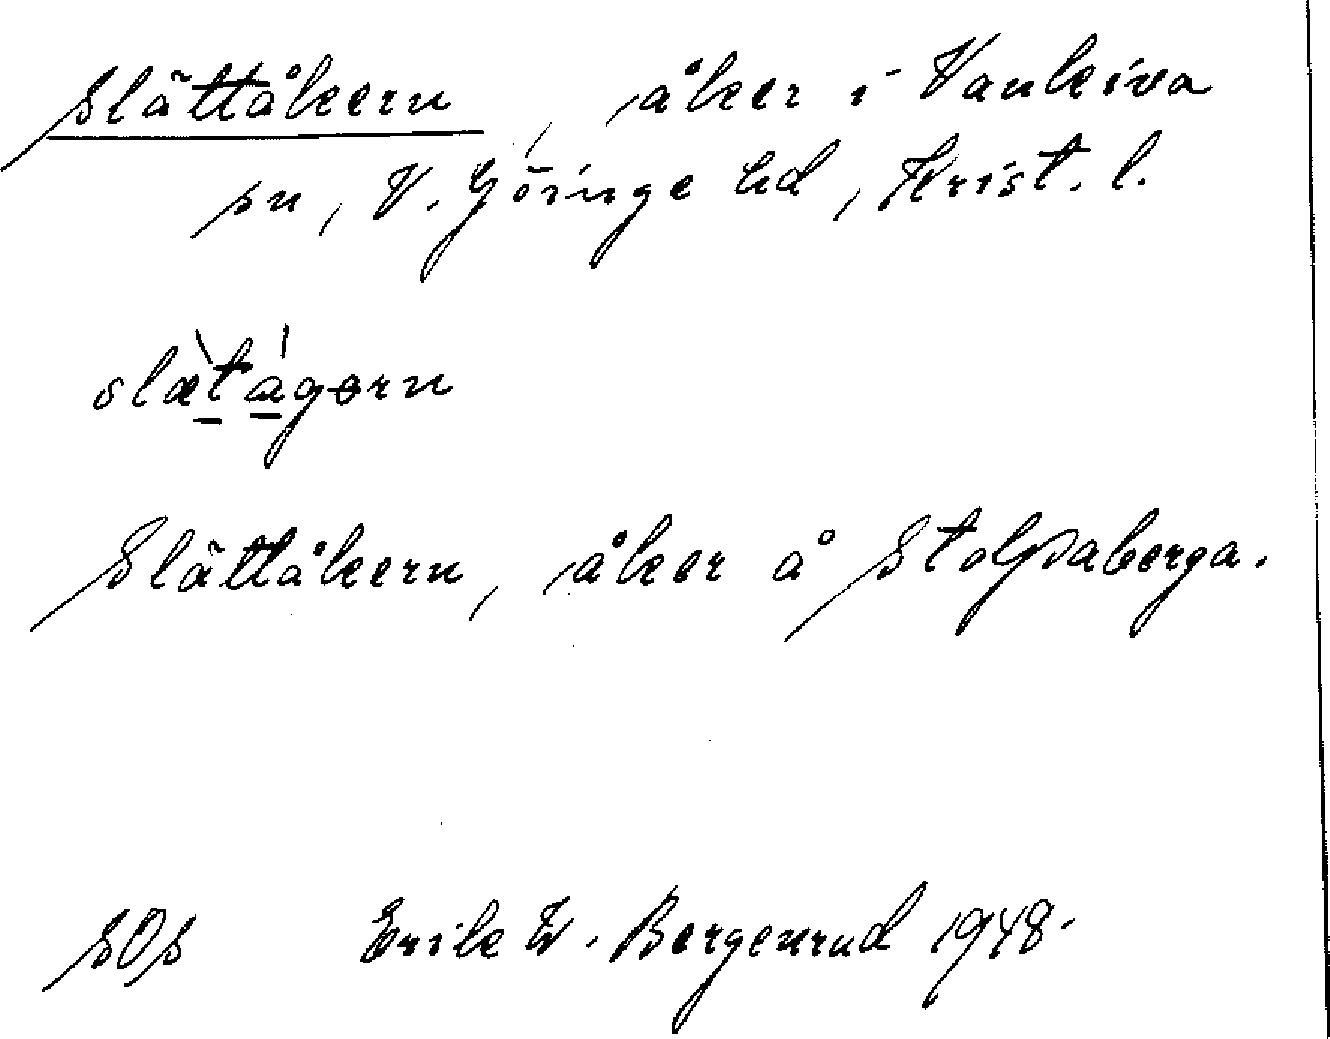 Slättåkern, åker i Vankiva
sn, V. Göinge hd, Krist. l.
slæ̀tágərn
Slättåkern, åker å Stolpaberga.
SOS Erik W. Bergenrud 1948.